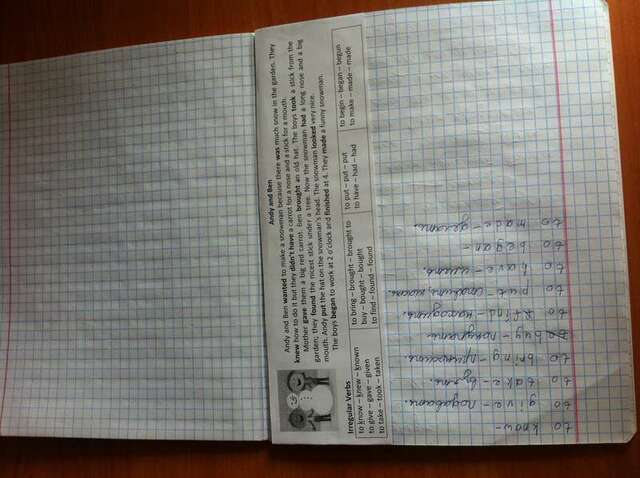 Andy and Ben
Andy and Ben wanted to make a snowman because there was much snow in the garden. They
knew how to do it but they didn't have a carrot for a nose and a stick for a mouth.
Mother gave them a big red carrot. Ben brought an old hat. The boys took a stick from the
garden; they found the nicest stick under a tree. Now the snowman had a long nose and a big
mouth. Andy put the hat on the snowman's head. The snowman looked very nice.
The boys began to work at 2 o'clock and finished at 4. They made a funny snowman.
Irregular Verbs
to know – knew – known
to give – gave – given
to take – took – taken
to bring – brought – brought to
buy – bought – bought
to find – found – found
to put – put – put
to have – had – had
to begin – began – begun
to make – made – made
to know -
to give - подавать.
to take - взять.
to bring - приносить
buy - покупать
to find - находить.
to put
to have - иметь.
to began -
to mace - делать.